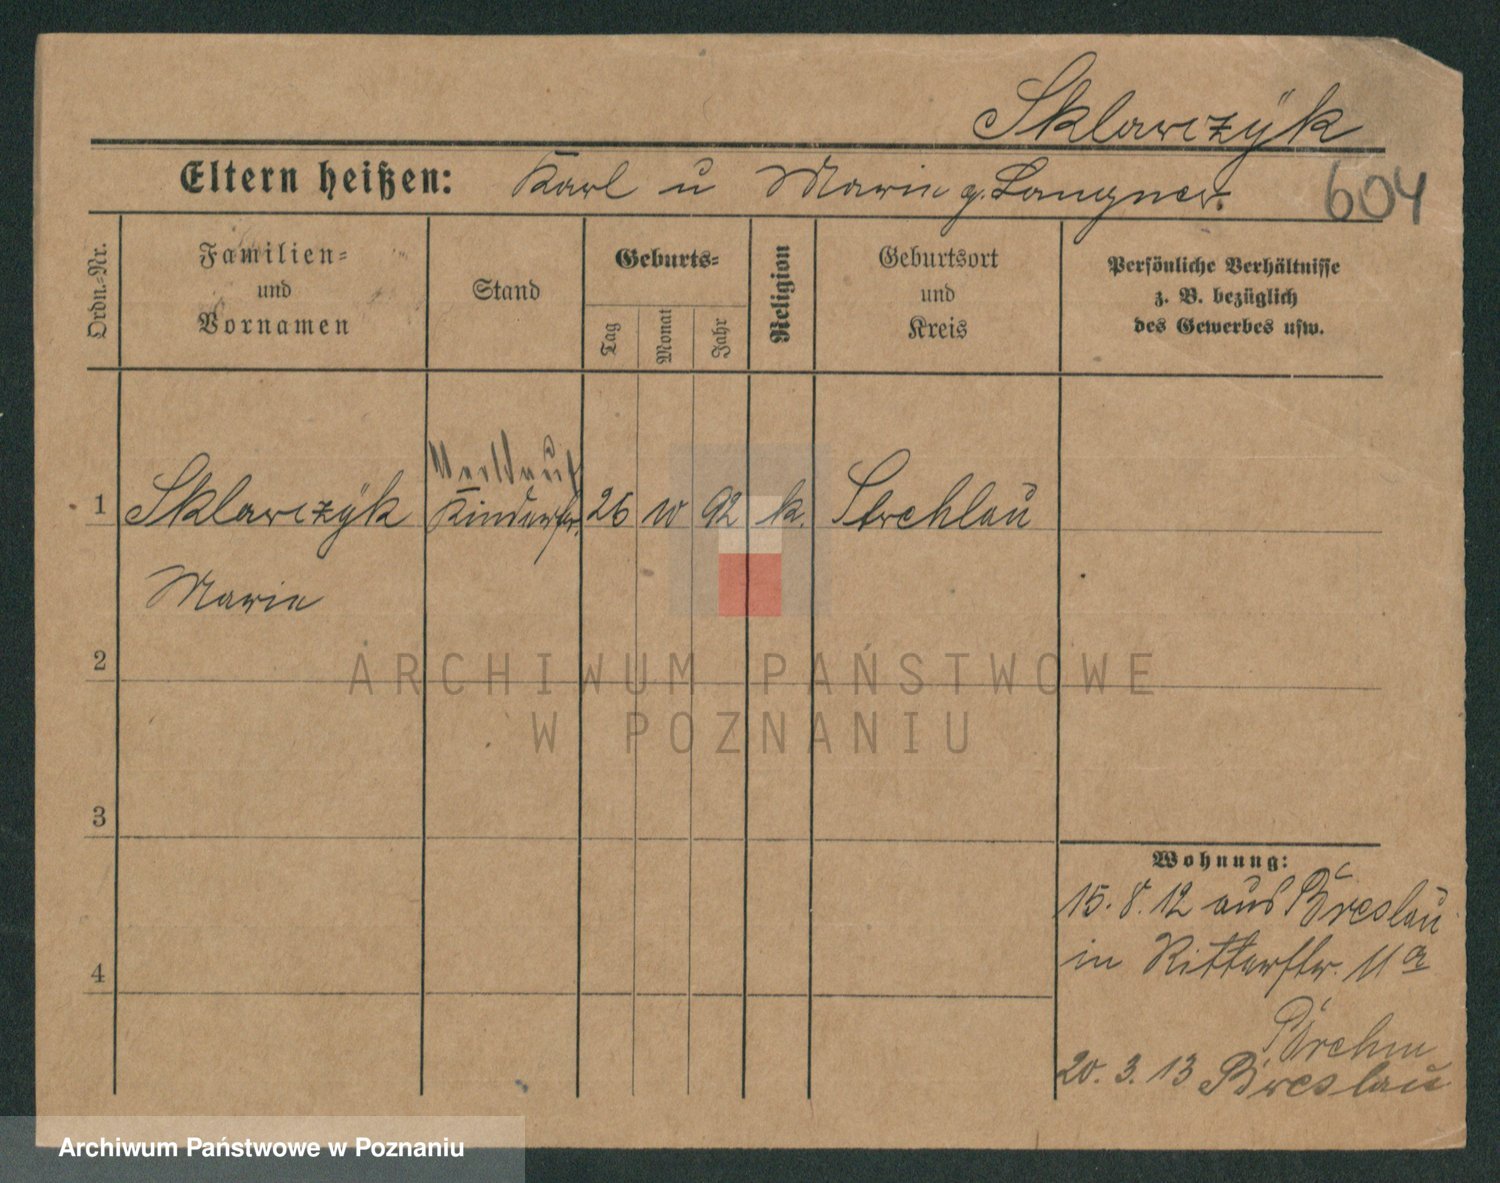 Sklawczÿk
Eltern heißen: Karl u Marie g. Langner.
604
Ordn.-Nr.
Familien-
und
Vornamen
Stand
Geburts-
Tag
Monat
Jahr
Religion
Geburtsort
und
Kreis
Persönliche Verhältnisse
z. B. bezüglich
des Gewerbes usw.
1 Sklawczÿk Kinderfr. 26 10 92 k. Strehlau
Marie
2
3
4
Wohnung:
15. 8. 12 aus Breslau
in Ritterstr. 11a
20. 3. 13 Breslau
ARCHIWUM PAŃSTWOWE
W POZNANIU
Archiwum Państwowe w Poznaniu